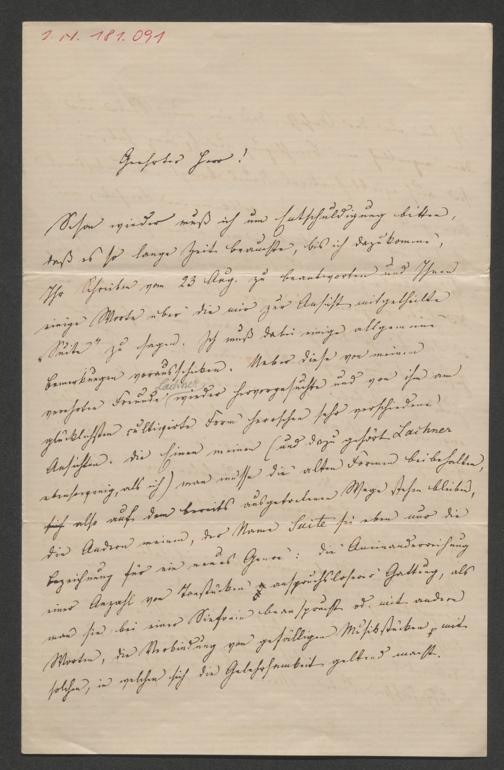 I. N. 181.091
Geehrter Herr!
Schon wieder muß ich um Entschuldigung bitten,
daß es so lange Zeit brauchte, bis ich dazukomme,
Ihr Schreiben vom 23 Aug. zu beantworten und Ihnen
einige Worte über die mir zur Ansicht mitgetheilte
„Suite“ zu sagen. Ich muß dabei einige allgemeine
Bemerkungen vorausschicken. Ueber diese von meinem
Lachner
verehrten Freunde wieder hervorgesuchte und von ihm am
glücklichsten cultivirte Form herrschen sehr verschiedene
Ansichten. Die Einen meinen (und dazu gehört Lachner
ebensowenig, als ich) man müsse die alten Formen beibehalten,
also auf dem bereits ausgetretenen Wege stehn bleiben,
die Andern meinen, der Name Suite sei eben nur die
Bezeichnung für ein neues Genre: die Aneinanderreihung
einer Anzahl von Tonstücken anspruchsloserer Gattung, als
man sie bei einer Sinfonie beansprucht od. mit andern
Worten, die Verbindung von gefälligen Musikstücken mit
solchen, in welchen sich die Gelehrsamkeit geltend macht.